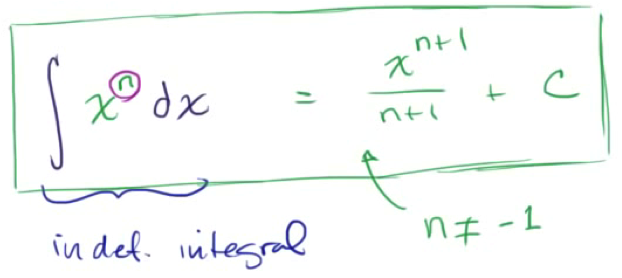 ∫ xⁿ dx = xⁿ⁺¹/n+1 + C
n ≠ -1
indef. integral